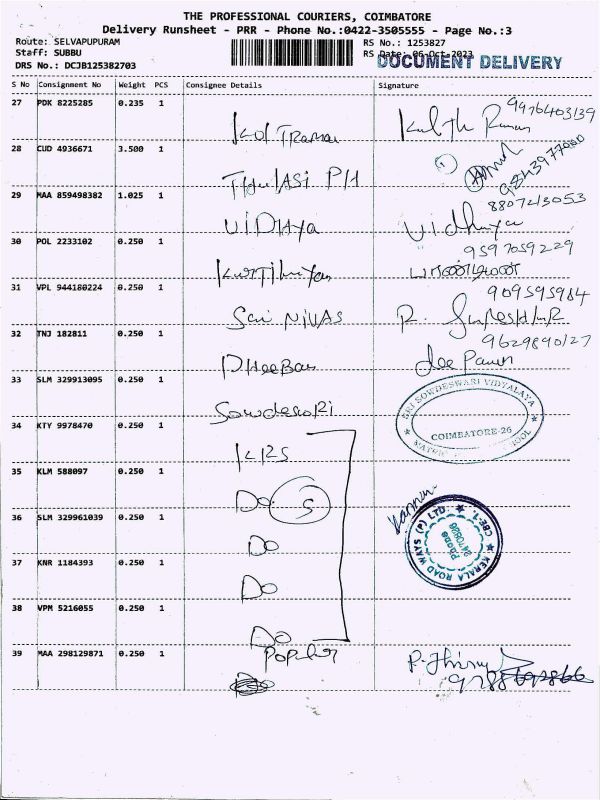 THE PROFESSIONAL COURIERS, COIMBATORE
Delivery Runsheet - PRR - Phone No.:0422-3505555 - Page No.:3
Route: SELVAPUPURAM
RS No.: 1253827
Staff: SUBBU
RS Date: 06-Oct-2023
DRS No.: DCJB125382703
DOCUMENT DELIVERY
S No Consignment No Weight PCS Consignee Details Signature
27 PDK 8225285 0.235 1
9976403139
28 CUD 4936671 3.500 1
THULASI PH
29 MAA 859498382 1.025 1
8807213053
VIDHYA Vidhya
30 POL 2233102 0.250 1
9597059229
31 VPL 944180224 0.250 1
909595984
Sai NIVAS
32 TNJ 182811 0.250 1
9629890127
DHEEBAN
33 SLM 329913095 0.250 1
SRI SOWDESWARI VIDYALAYA
COIMBATORE-26
SCHOOL
34 KTY 9978470 0.250 1
KRS
35 KLM 588097 0.250 1
Do 5
Kannan
36 SLM 329961039 0.250 1
KERALA ROAD WAYS (P) LTD. CBE-1
Phone
Do
37 KNR 1184393 0.250 1
Do
38 VPM 5216055 0.250 1
Do
39 MAA 298129871 0.250 1
Popular